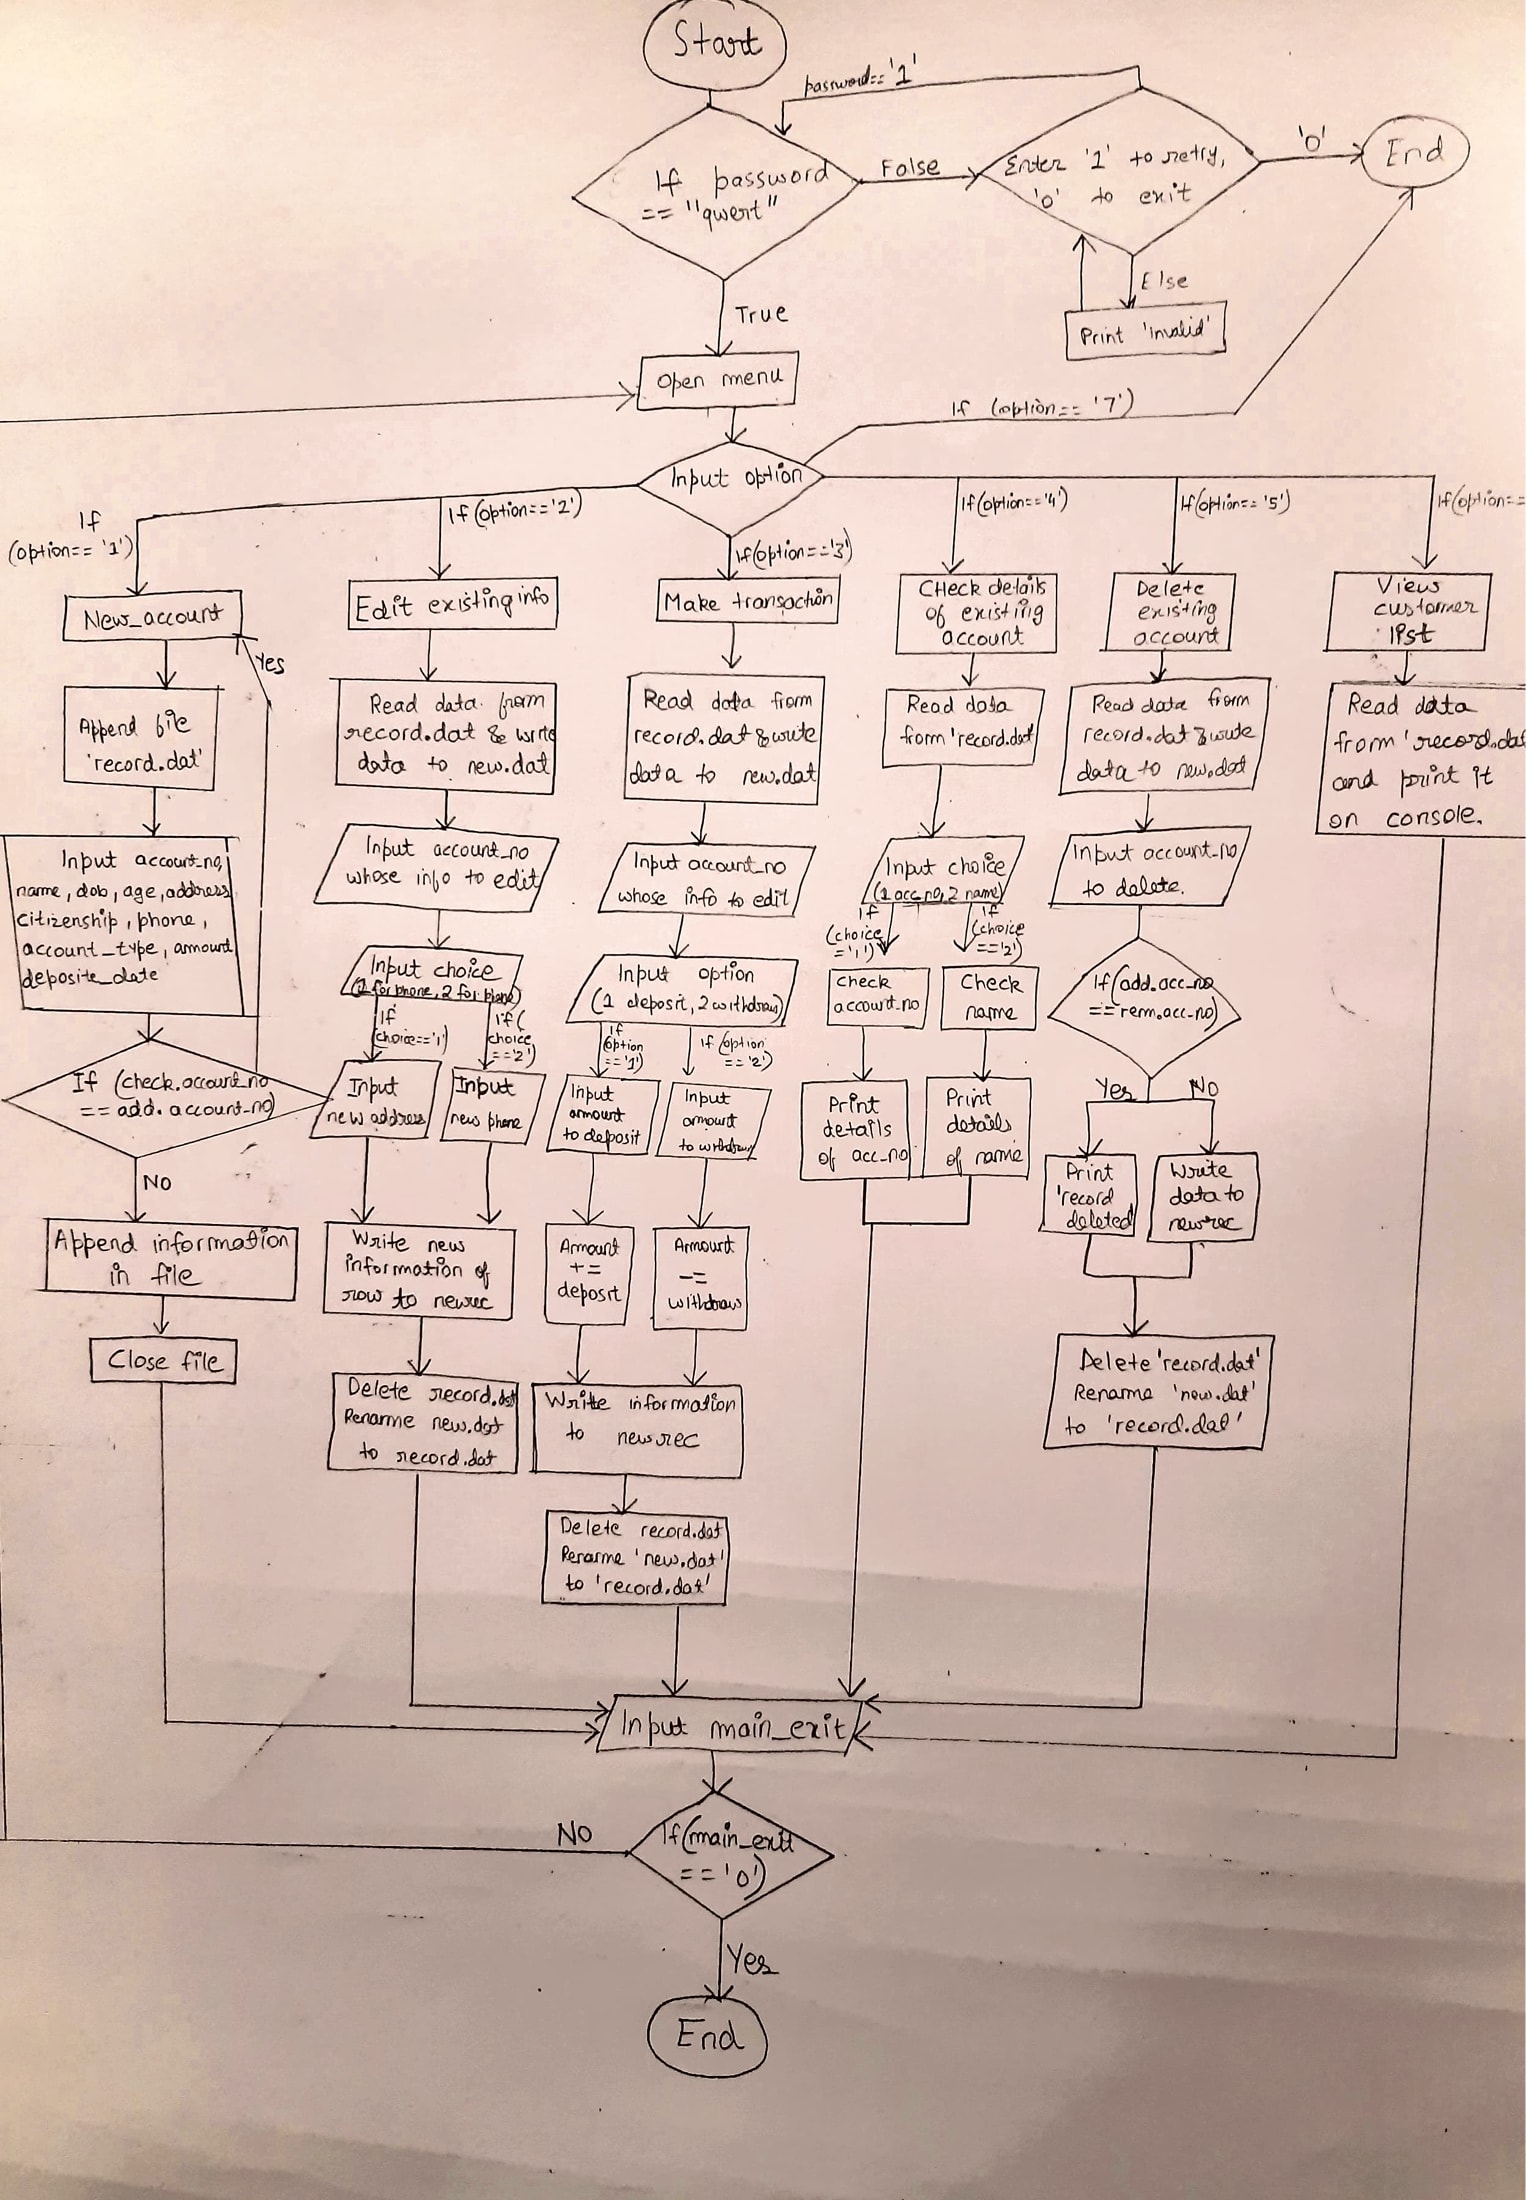 Start
password=='1'
If password
== "qwert"
False
Enter '1' to retry,
'0' to exit
'0'
End
Else
Print 'invalid'
True
Open menu
If (option== '7')
Input option
If
(option== '1')
If (option=='2')
If(option=='3')
If(option=='4')
If(option=='5')
If(option==
New_account
Yes
Append file
'record.dat'
Input account_no,
name, dob, age, address
citizenship, phone,
account_type, amount
deposite_date
If (check.account_no
== add. account_no)
NO
Append information
in file
Close file
Edit existing info
Read data from
record.dat & write
data to new.dat
Input account_no
whose info to edit
Input choice
If
(choice=='1')
If(
choice
=='2')
Input
new address
Input
new phone
Write new
information of
row to newrec
Delete record.dat
Rename new.dat
to record.dat
Make transaction
Read data from
record.dat & write
data to new.dat
Input account_no
whose info to edit
Input option
(1 deposit, 2 withdraw)
If
(option
=='1')
If (option
=='2')
Input
amount
to deposit
Input
amount
to withdraw
Amount
+=
deposit
Amount
-=
withdraw
Write information
to newrec
Delete record.dat
Rename 'new.dat'
to 'record.dat'
CHeck details
of existing
account
Read data
from 'record.dat
Input choice
(1 acc_no, 2 name)
If
(choice
If
(choice
=='2')
Check
account_no
Check
name
Print
details
of acc_no
Print
details
of name
Delete
existing
account
Read data from
record.dat & write
data to new.dat
Input account_no
to delete.
If(add.acc_no
==rem.acc_no)
Yes
NO
Print
'record
deleted
Write
data to
newrec
Delete 'record.dat'
Rename 'new.dat'
to 'record.dat'
View
customer
list
Read data
from 'record.dat
and print it
on console.
Input main_exit
If(main_exit
== '0')
NO
Yes
End